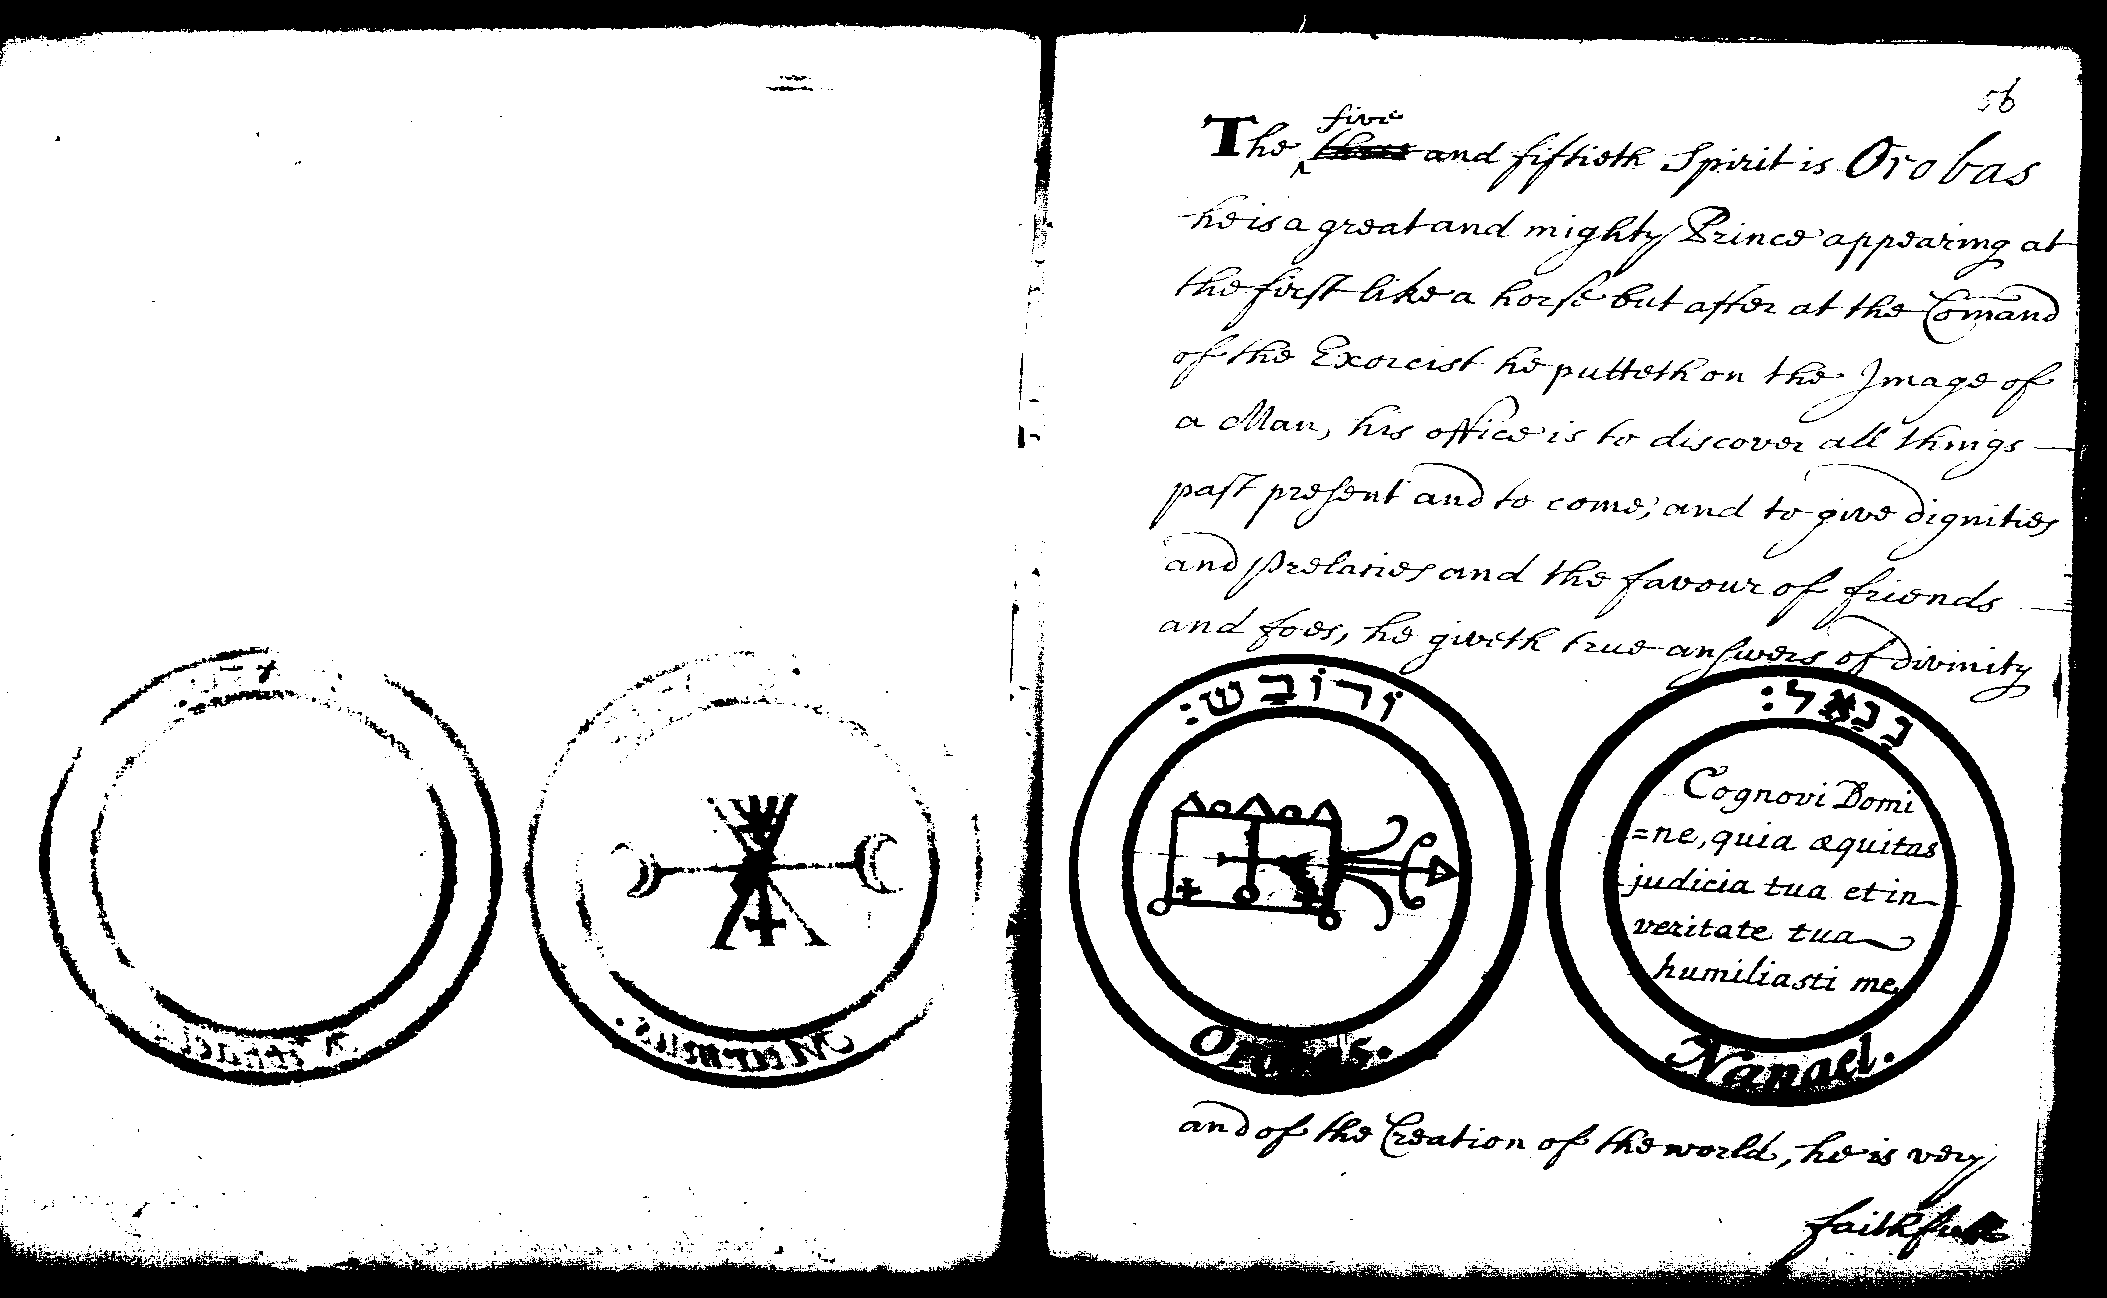 56
five
The three and fiftieth Spirit is Orobas
he is a great and mighty Prince appearing at
the first like a horse but after at the Comand
of the Exorcist he putteth on the Image of
a Man, his office is to discover all things
past present and to come, and to give dignities
and Prelacies and the favour of friends
and foes, he giveth true answers of divinity
ורובש:
ננאל:
Cognovi Domi
=ne, quia æquitas
judicia tua et in
veritate tua
humiliasti me,
Orobas.
Nanael.
and of the Creation of the world, he is very
faithfull